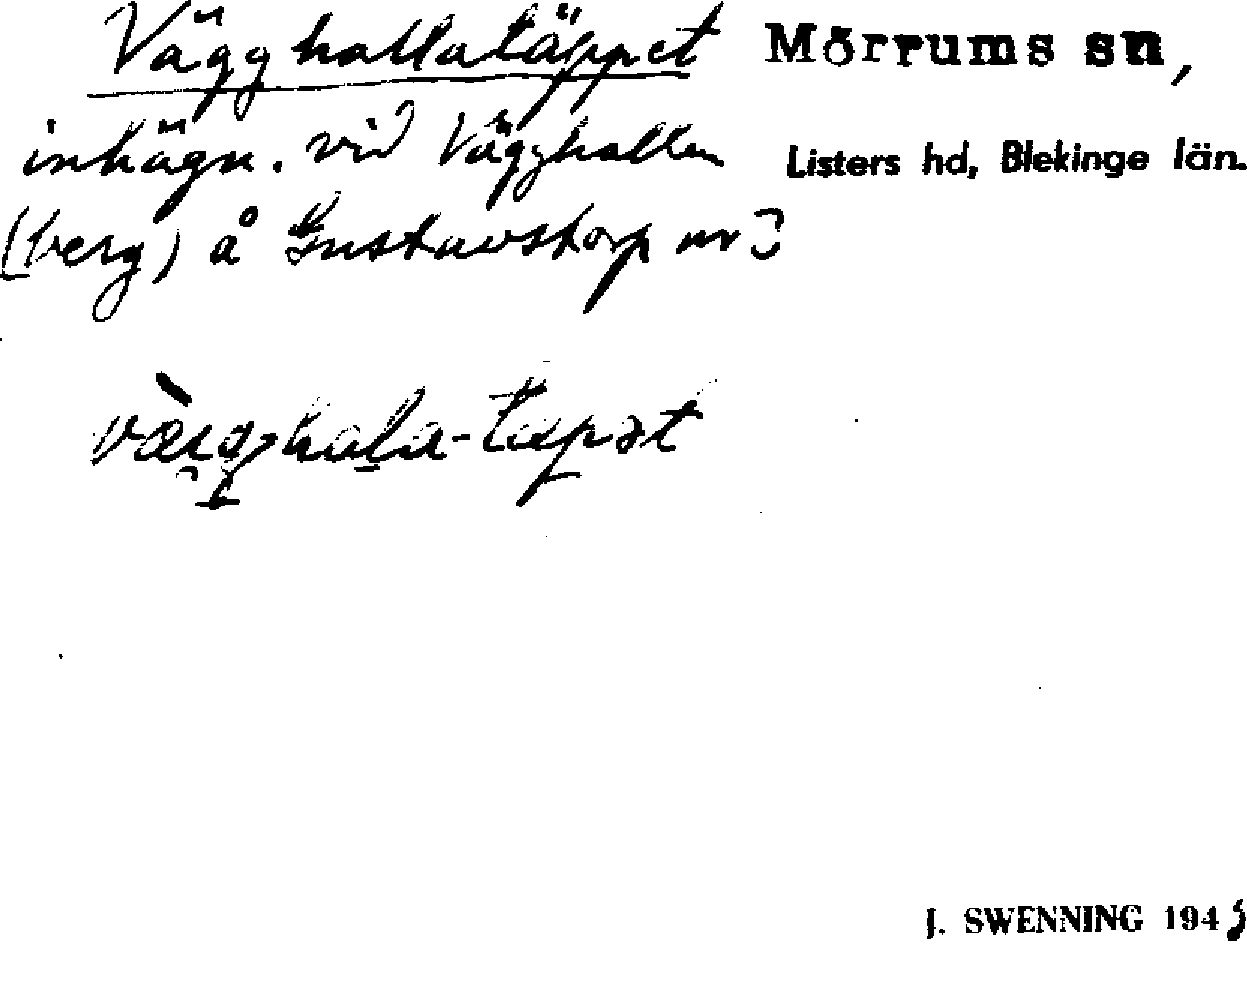 Vägghallatäppet Mörrums sn,
inhägn. vid Vägghallen Listers hd, Blekinge län.
(berg) å Gustavstorp nr 3
J. SWENNING 1945